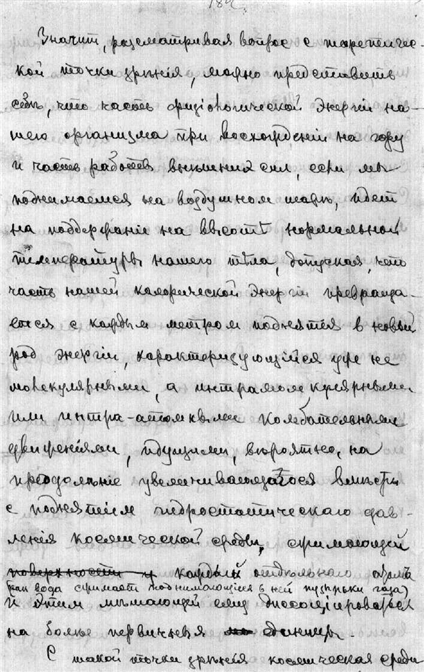 184.
Значит, разсматривая вопрос с теоретичес-
кой точки зрѣнія, можно представить
себѣ, что часть физіологической энергіи на-
шего организма при восхожденіи на гору
и часть работы внѣшних сил, если мы
поднимаемся на воздушном шарѣ, идет
на поддержаніе на высотѣ нормальной
температуры нашего тѣла, допуская, что
часть нашей калорической энергіи превраща-
ется с каждым метром поднятія в новый
род энергіи, характеризующійся уже не
молекулярными, а интрамолекулярными
или интра-атомными колебательными
движеніями, идущими, вѣроятно, на
преодолѣніе увеличивающагося вмѣстѣ
с поднятіем гидростатическаго дав-
ленія космической среды, сжимающей
поверхность и каждый отдѣльнаго
(как вода сжимает поднимающіеся в ней пузырьки газа)
и этим мѣшающей ему диссоціироваться
на болѣе первичныя единицы.
С такой точки зрѣнія космическая среда